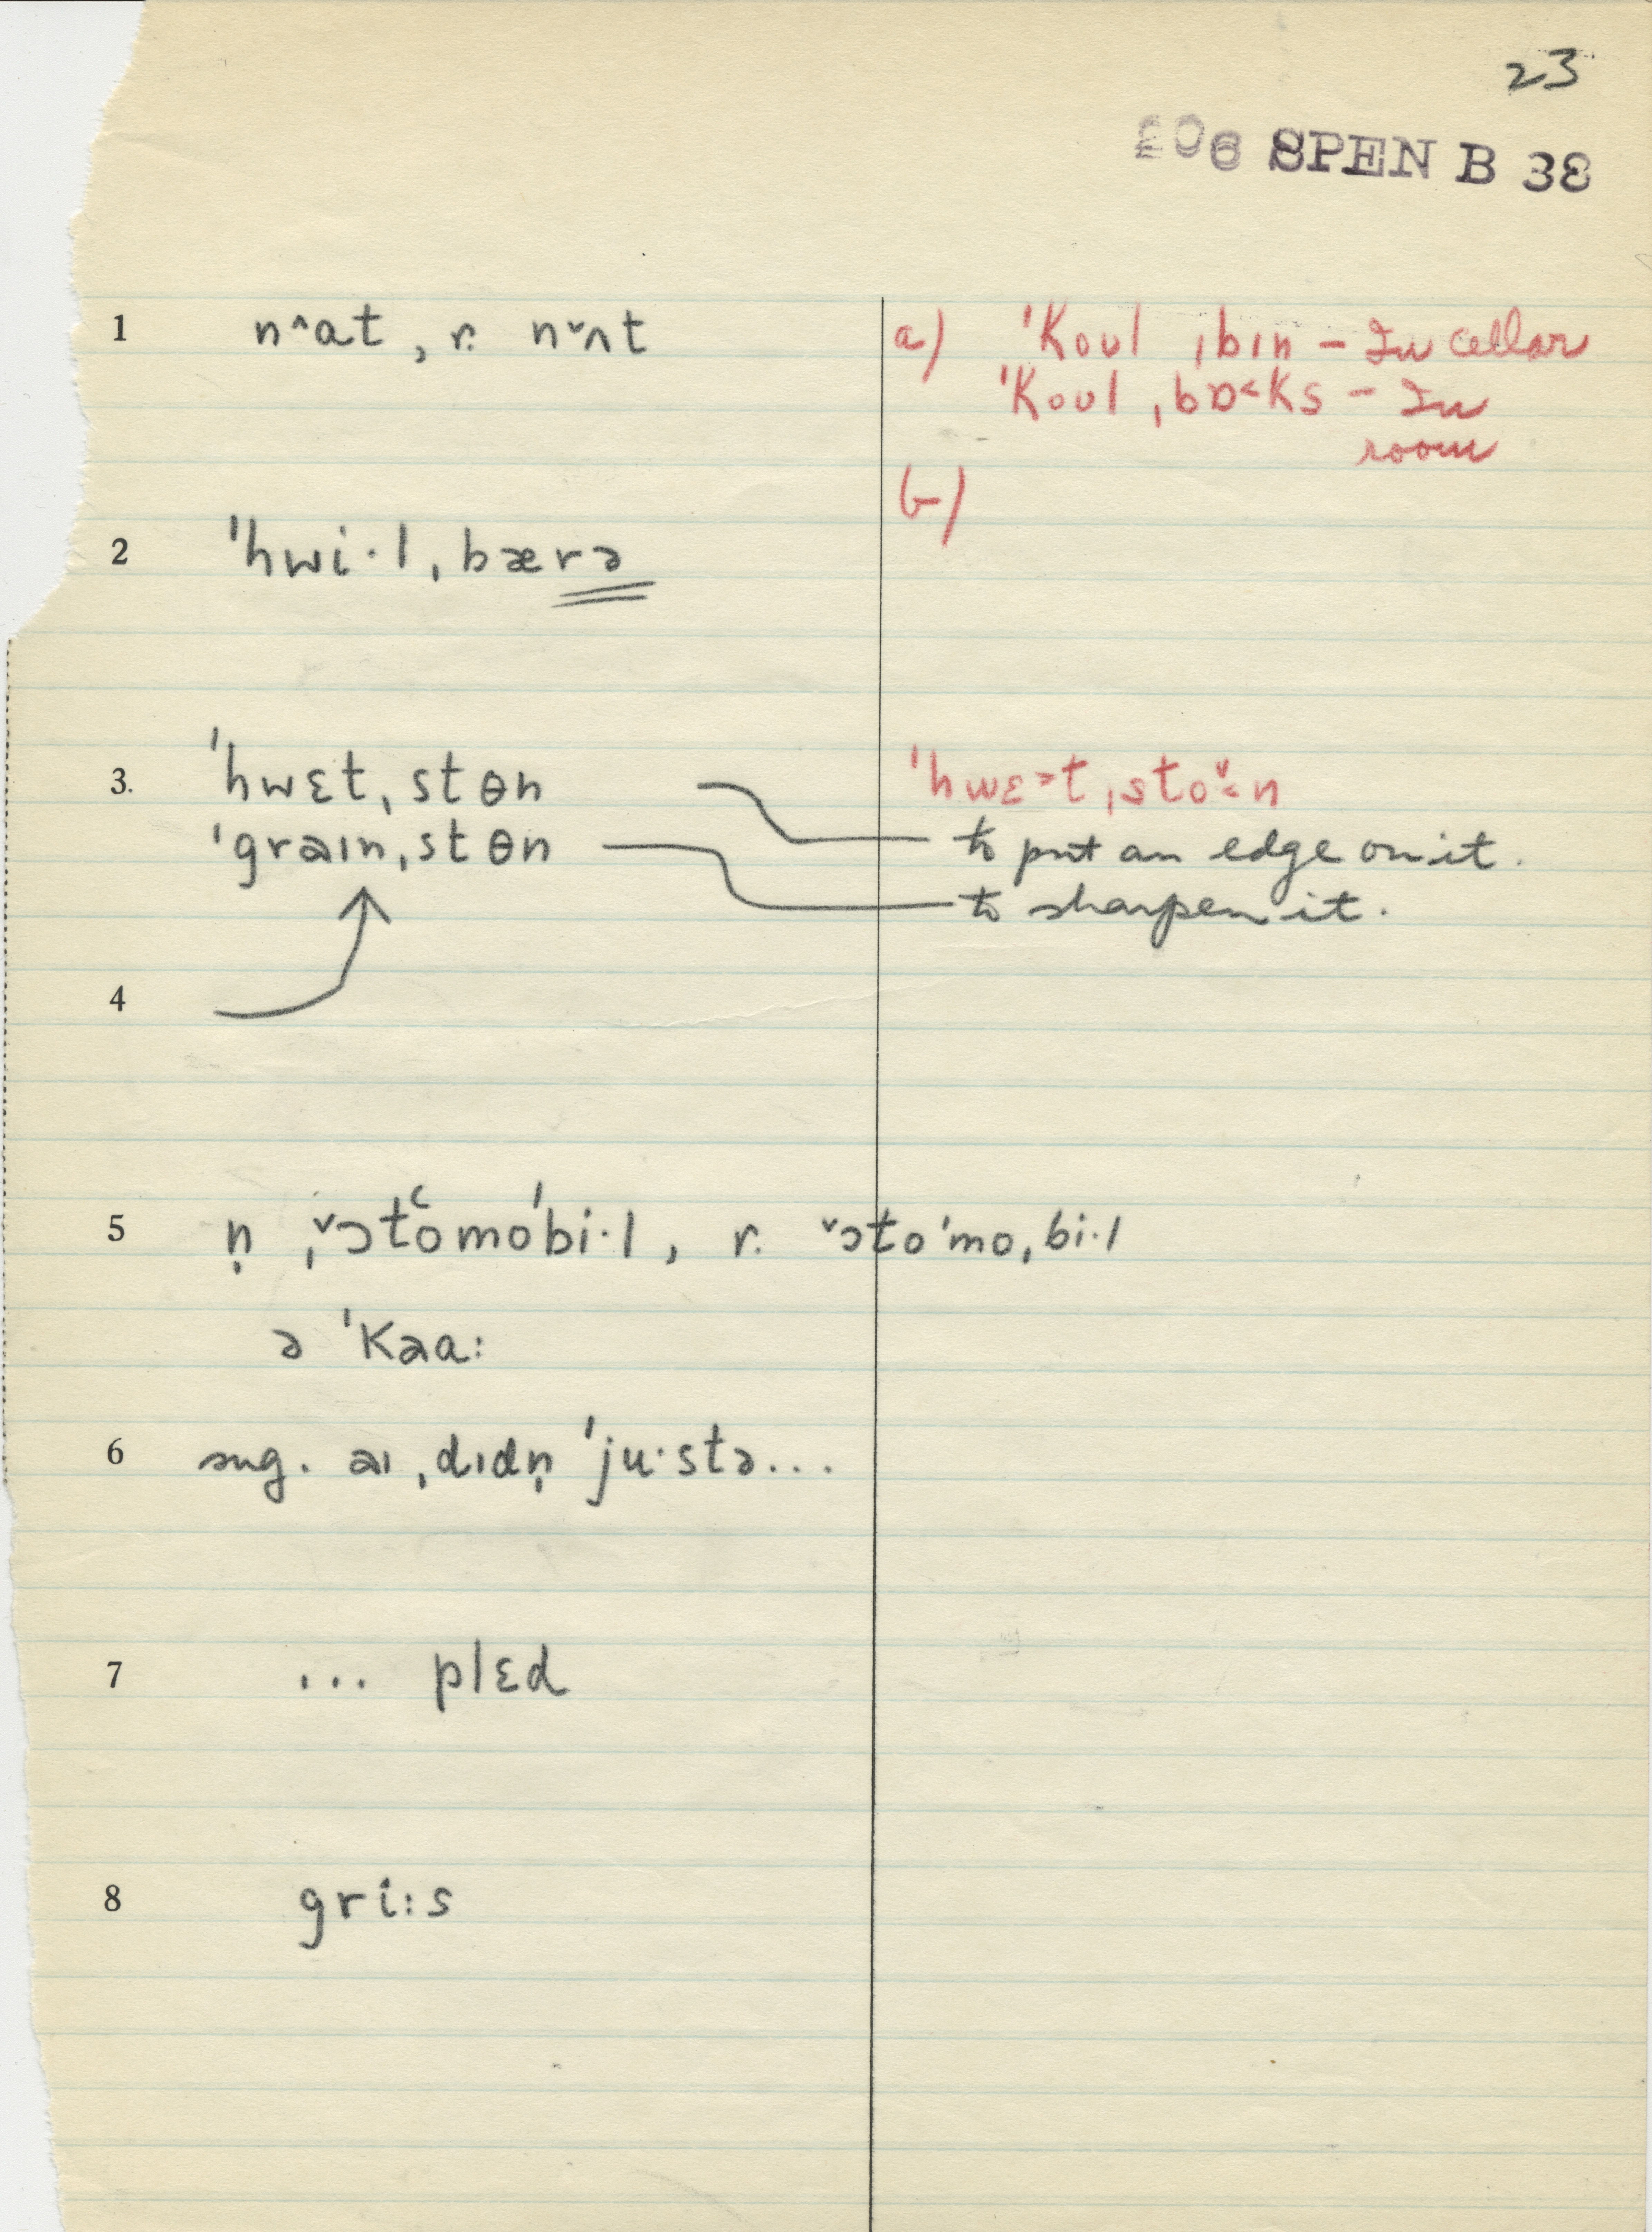 23
206 SPEN B 38
1 n^at, r. nˇʌt
a) ˈkoʊl ˌbɪn – In cellar
ˈkoʊl ˌbɒ˂ks – In
room
b)
2 ˈhwi·l ˌbærə
3. ˈhwɛt ˌstɵn
ˈhwɛ˃t ˌstoˇ˂n
ˈgraɪn ˌstɵn
to put an edge on it.
to sharpen it.
4
5 n̩ ˌˇɔtʿomoˈbi·l, r. ˇɔtoˈmoˌbi·l
ə ˈkaa:
6 sug. aɪ ˌdɪdn̩ ˈju·stə...
7 ... plɛd
8 gri:s